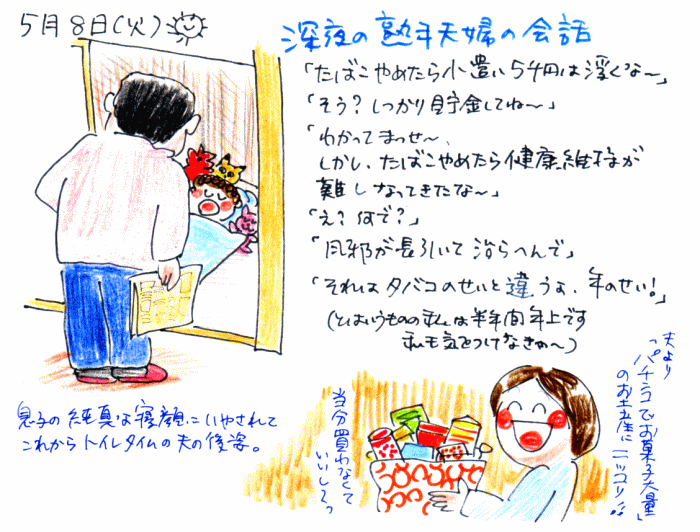 5月8日(火)
深夜の熟年夫婦の会話
「たばこやめたら小遣い5千円は浮くな〜」
「そう?しっかり貯金してね〜」
「わかってまっせ〜、
しかし、たばこやめたら健康維持が
難しなってきたな〜」
「え?何で?」
「風邪が長引いて治らへんで」
「それはタバコのせいと違うよ、年のせい!」
(とはいうものの私は半年間年上です
私も気をつけなきゃ〜)
息子の純真な寝顔にいやされて
これからトイレタイムの夫の後姿。
夫より
「パチンコでお菓子大量」
のお土産にニッコリ!!
「当分買わなくて
いいしぃっ